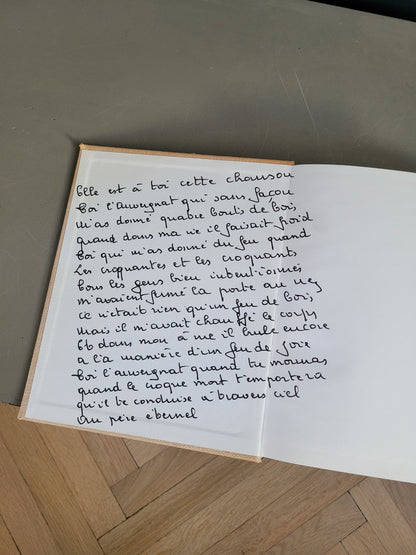 Elle est à toi cette chanson
toi l'auvergnat qui sans façon
m'as donné quatre bouts de bois
quand dans ma vie il faisait froid
toi qui m'as donné du feu quand
Les croquantes et les croquants
tous les gens bien intentionnés
m'avaient fermé la porte au nez
ce n'était rien qu'un feu de bois
mais il m'avait chauffé le corps
Et dans mon âme il brule encore
a l'a manière d'un feu de joie
toi l'auvergnat quand tu mourras
quand le croque mort t'emportera
qu'il te conduise à travers ciel
au père éternel